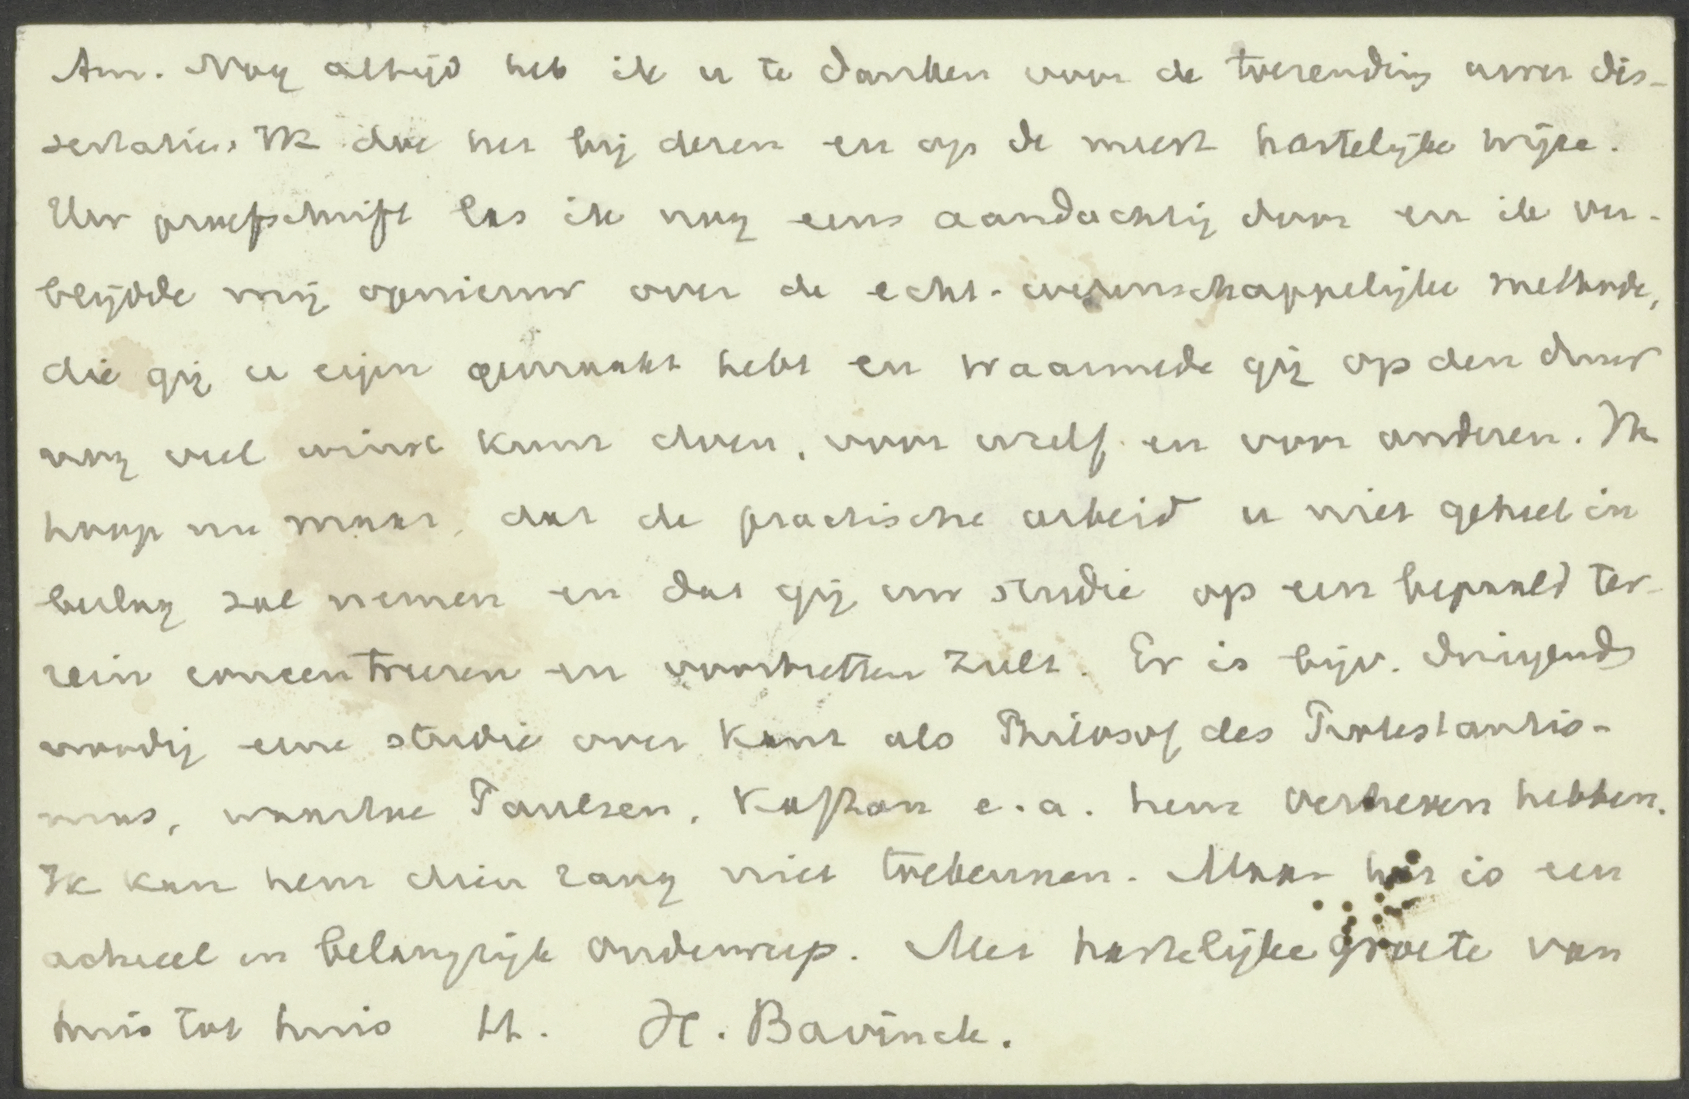 Am. Nog altijd heb ik u te danken voor de toezending uwer dis-
sertatie. Ik doe het bij dezen en op de meest hartelijke wijze.
Uw proefschrift las ik nog eens aandachtig door en ik ver-
blijdde mij opnieuw over de echt-wetenschappelijke methode,
die gij u eigen gemaakt hebt en waarmede gij op den duur
nog veel winst kunt doen, voor uzelf en voor anderen. Ik
hoop nu maar, dat de practische arbeid u niet geheel in
beslag zal nemen en dat gij uw studie op een bepaald ter-
rein concentreeren en voortzetten zult. Er is bijv. dringend
noodig eene studie over Kant als Philosof des Protestantis-
mus, waartoe Paulsen, Kaftan e.a. hem verheven hebben.
Ik kan hem dien rang niet toekennen. Maar het is een
actueel en belangrijk onderwerp. Met hartelijke groete van
huis tot huis tt. H. Bavinck.